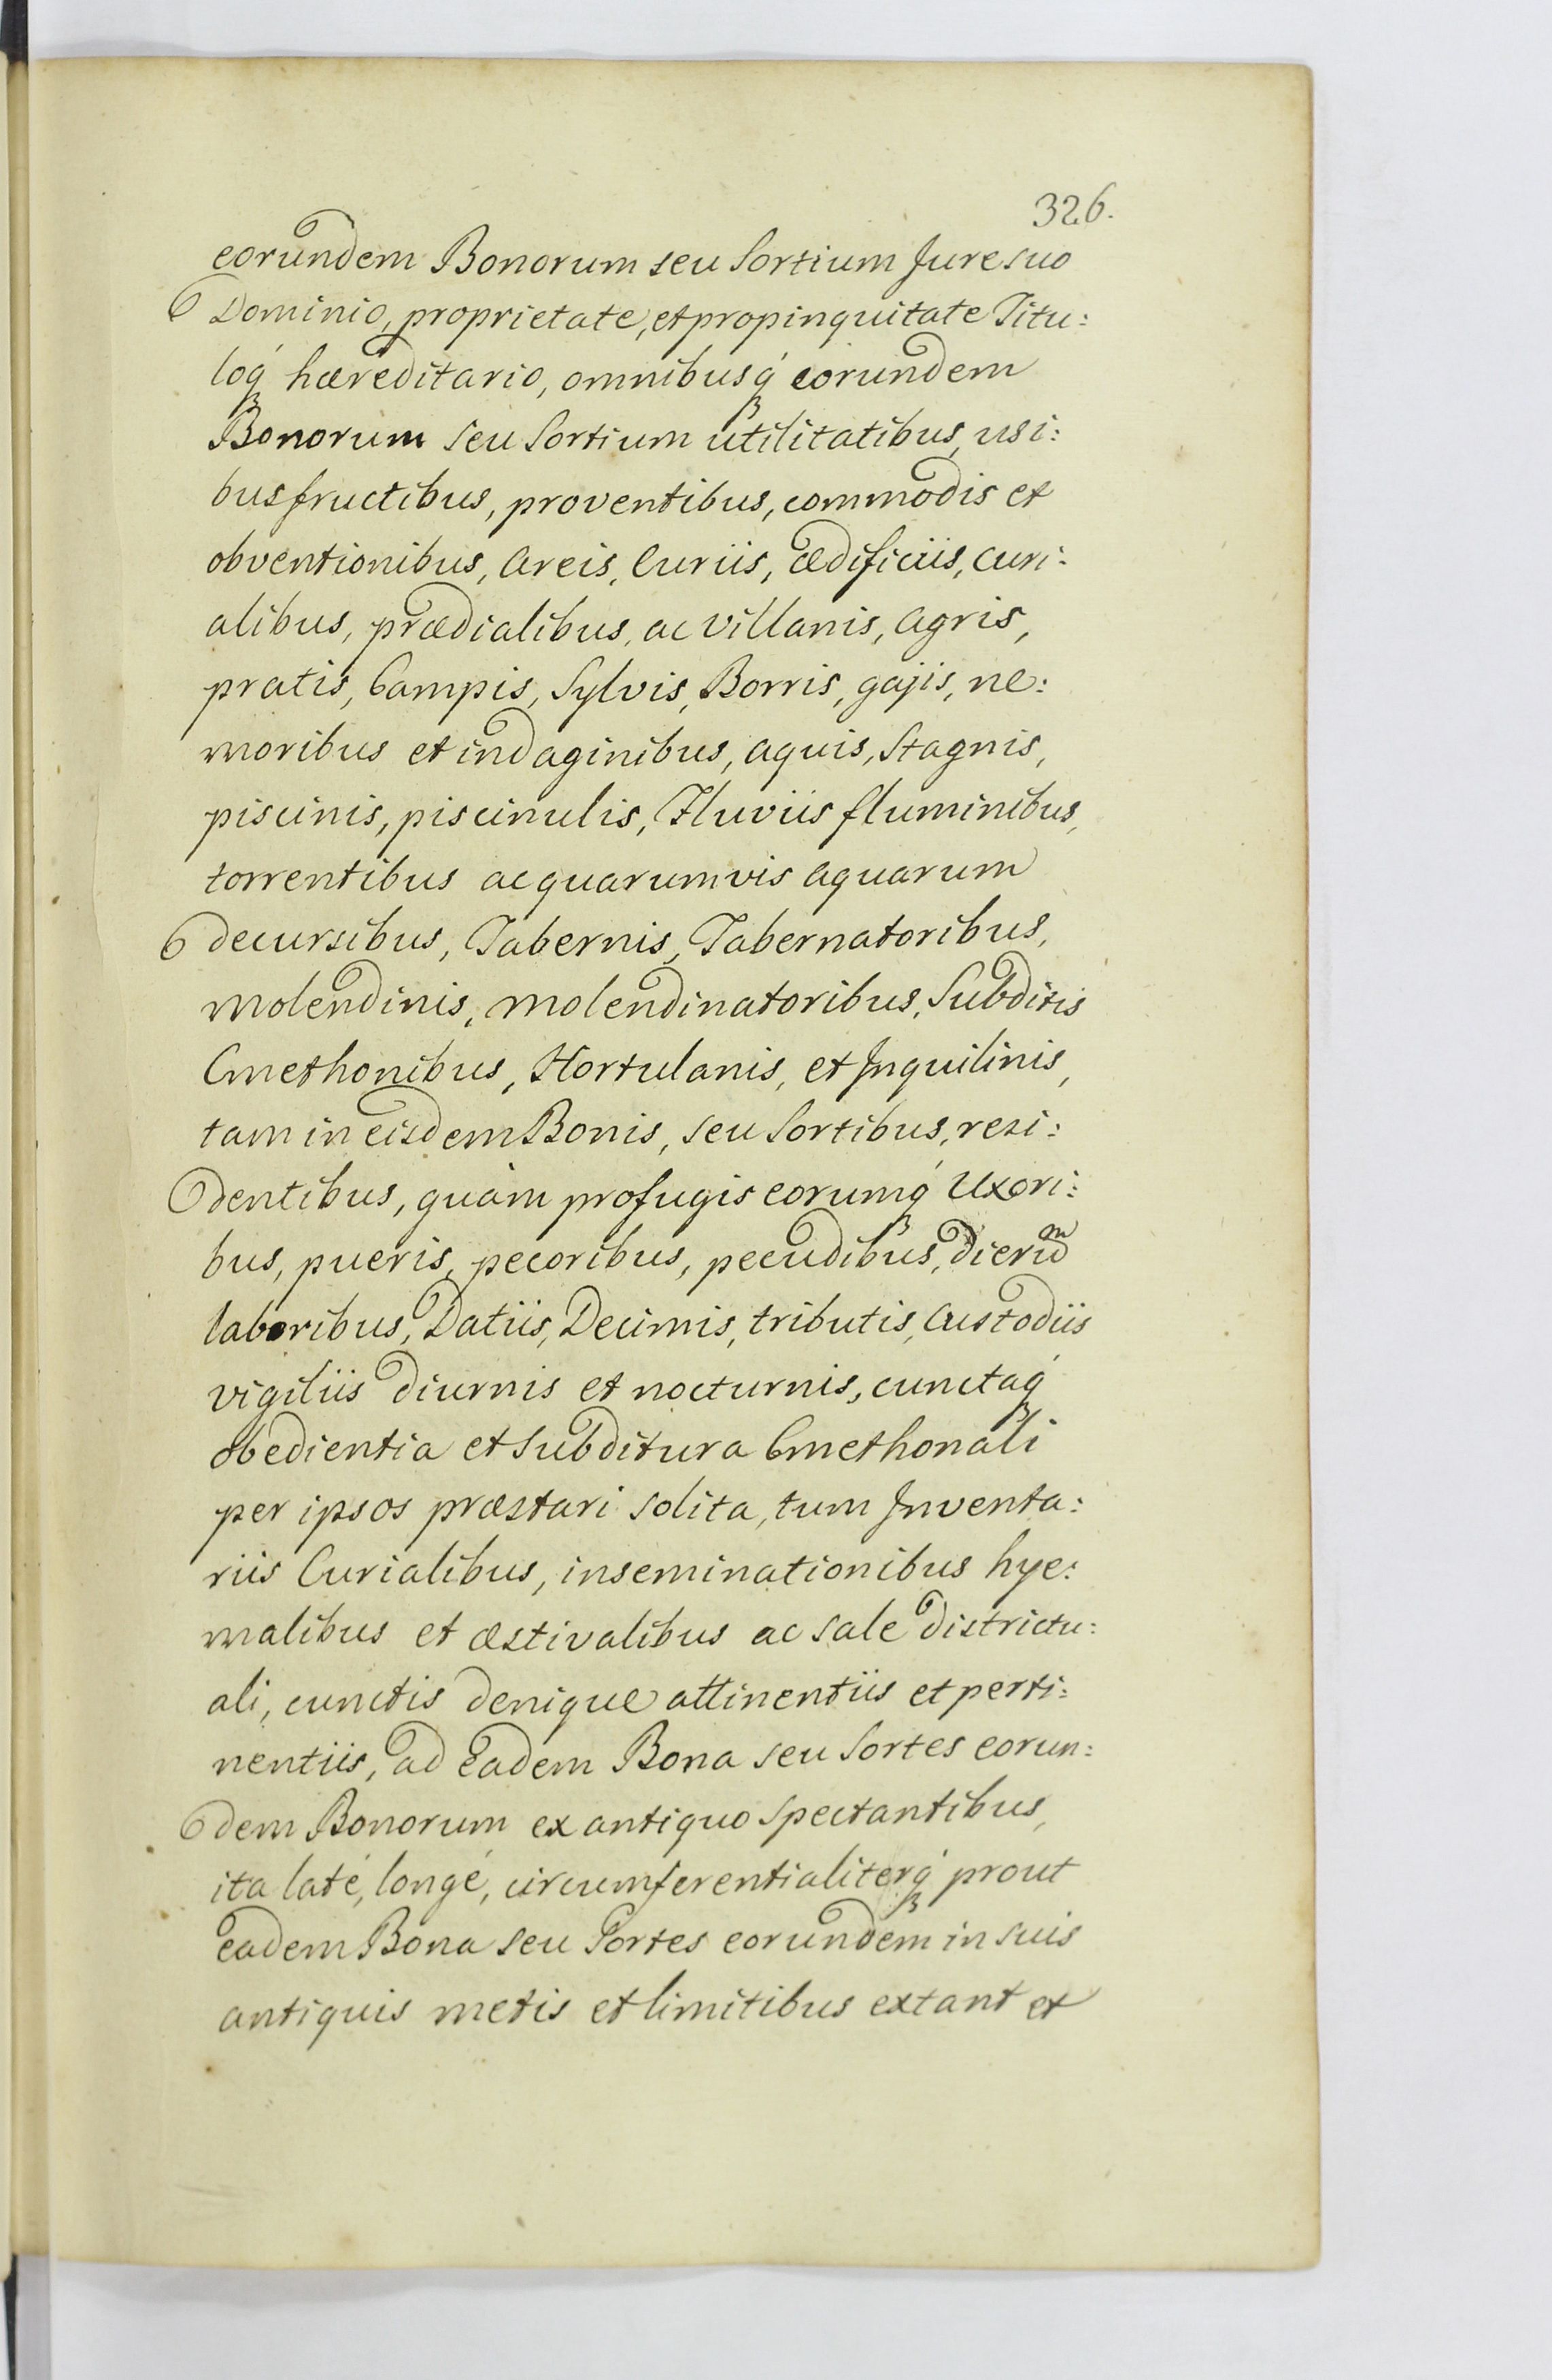 326.
eorundem Bonorum seu Sortium Jure suo
Dominio, proprietate, et propinquitate Titu:
loq́ꝫ hæreditario, omnibusq́ꝫ eorundem
Bonorum seu Sortium utilitatibus, usi:
busfructibus, proventibus, commodis et
obventionibus, Areis, Curiis, ædificiis, curi:
alibus, prædialibus, ac villanis, agris,
pratis, Campis, Sylvis, Borris, gajis, ne:
moribus et indaginibus, aquis, Stagnis,
piscinis, piscinulis, Fluviis fluminibus,
torrentibus ac quarumvis aquarum
decursibus, Tabernis, Tabernatoribus,
Molendinis, Molendinatoribus, Subditis
Cmethonibus, Hortulanis, et Inquilinis,
tam in eisdem Bonis, seu Sortibus, resi:
dentibus, quàm profugis eorumq́ꝫ Uxori:
bus, pueris, pecoribus, pecudibus, dierum
laboribus, Datiis, Decimis, tributis, Custodiis
vigiliis diurnis et nocturnis, cunctaq́ꝫ
obedientia et subditura Cmethonali
per ipsos præstari solita, tum Inventa:
riis Curialibus, inseminationibus hye:
malibus et æstivalibus ac sale districtu:
ali, cunctis denique attinentiis et perti:
nentiis, ad eadem Bona seu Sortes eorun:
dem Bonorum ex antiquo spectantibus,
ita laté, longé, circumferentialiterq́ꝫ prout
eadem Bona seu Sortes eorundem in suis
antiquis metis et limitibus extant et